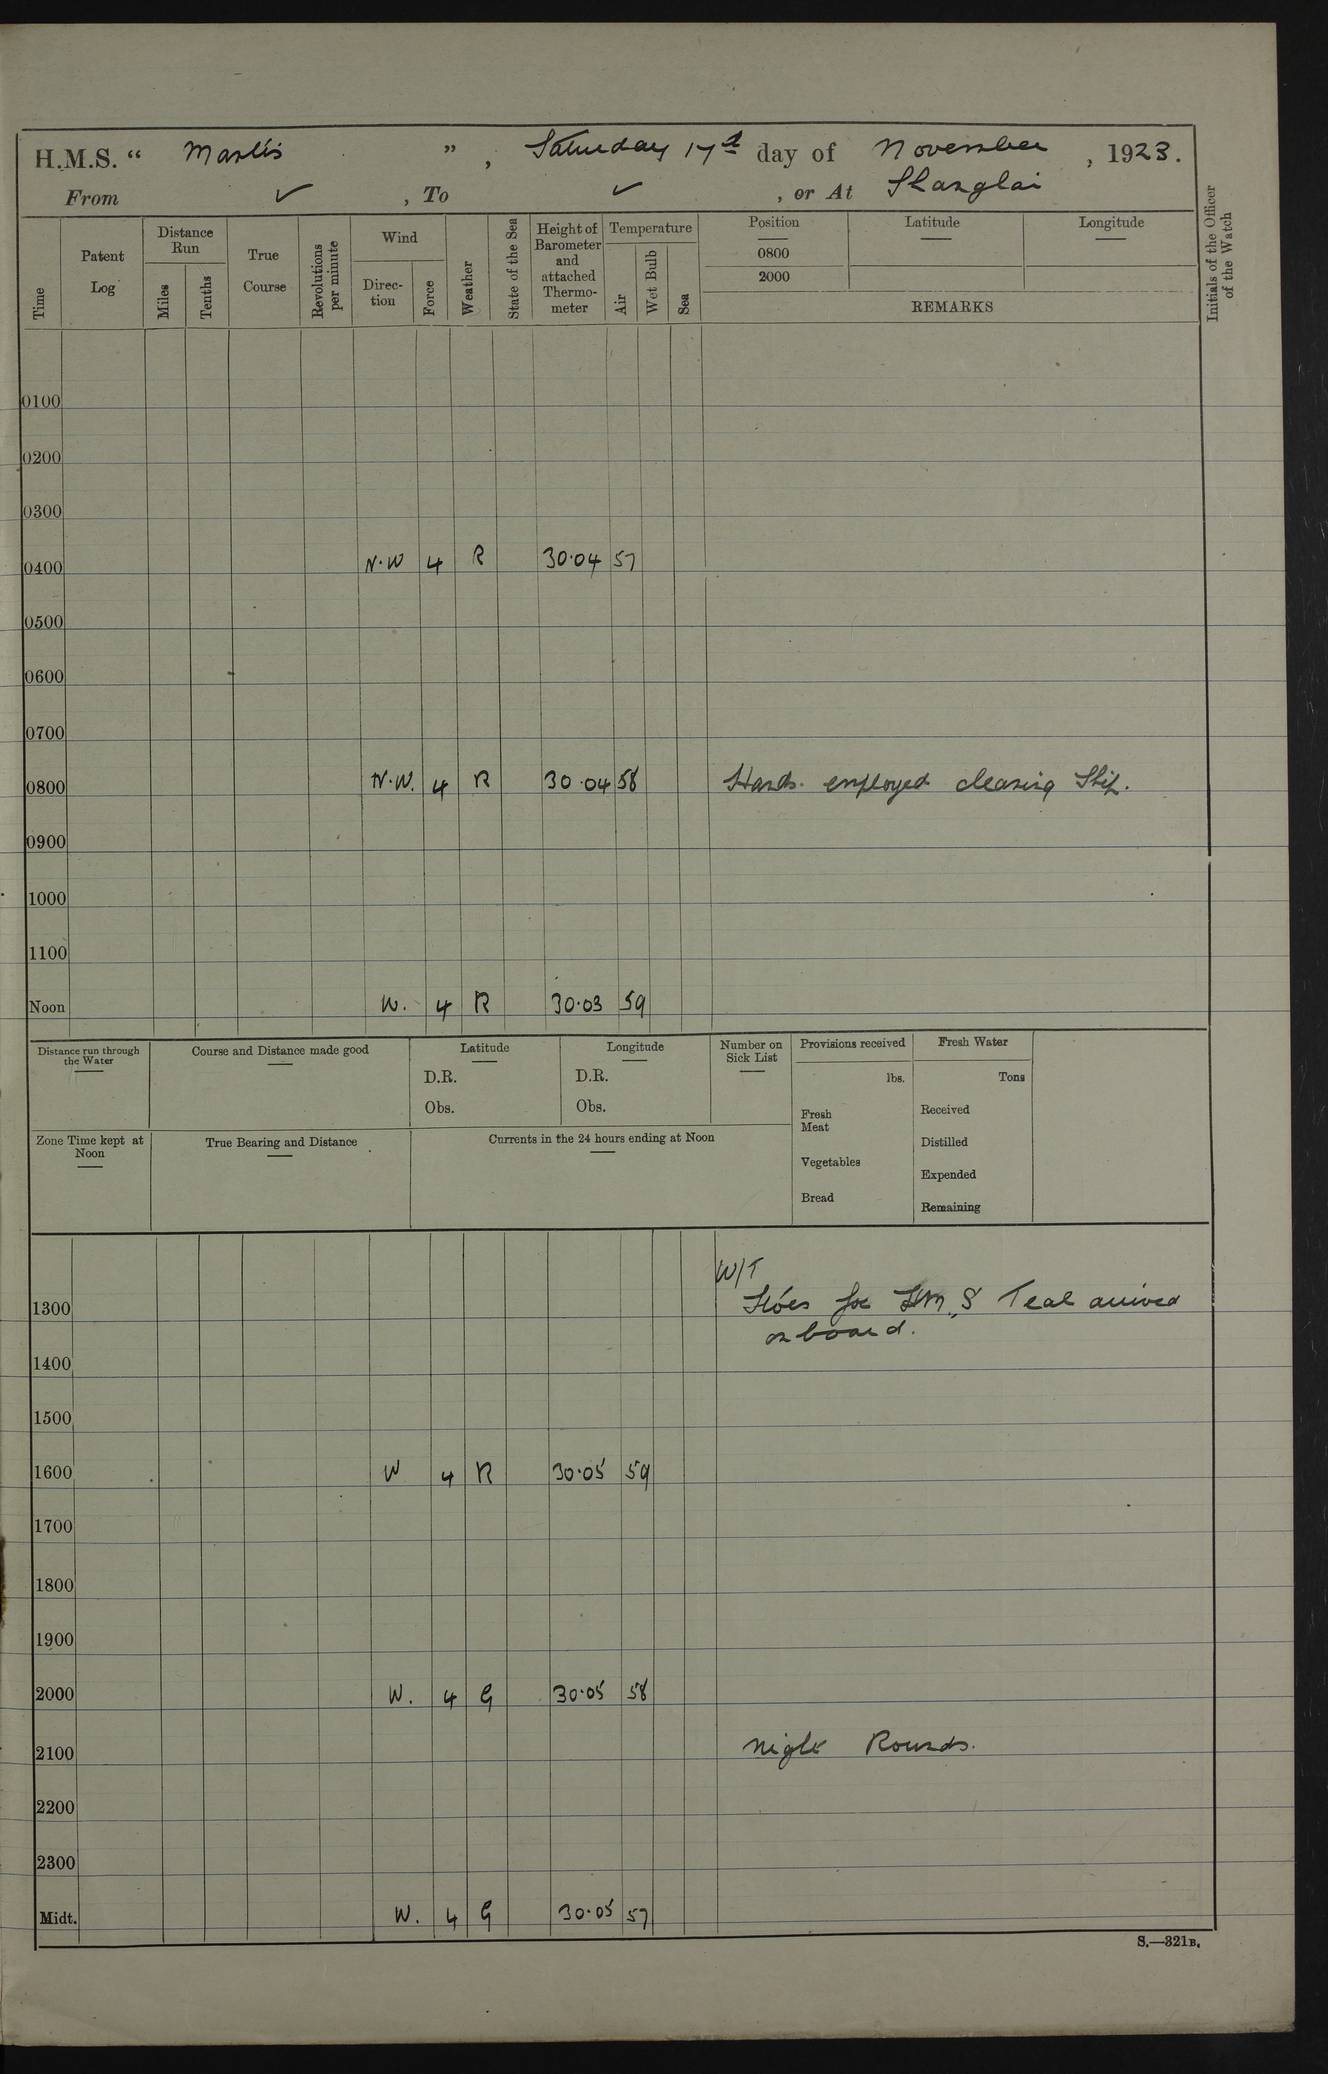 H.M.S. " Mantis ", Saturday 17th day of November, 1923.
From ✓, To ✓, or At Shanghai
Time
Patent Log
Distance Run
Miles
Tenths
True Course
Revolutions per minute
Wind
Direction
Force
Weather
State of the Sea
Height of Barometer and attached Thermometer
Temperature
Air
Wet Bulb
Sea
Position
Latitude
Longitude
0800
2000
REMARKS
Initials of the Officer of the Watch
0100
0200
0300
0400 N.W 4 R 30.04 57
0500
0600
0700
0800 N.W. 4 R 30.04 58 Hands employed cleaning Ship.
0900
1000
1100
Noon W. 4 R 30.03 59
Distance run through the Water
Course and Distance made good
Latitude
D.R.
Obs.
Longitude
D.R.
Obs.
Number on Sick List
Provisions received
lbs.
Fresh Meat
Vegetables
Bread
Fresh Water
Tons
Received
Distilled
Expended
Remaining
Zone Time kept at Noon
True Bearing and Distance
Currents in the 24 hours ending at Noon
W/T
1300 Stores for H.M.S Teal arrived
on board.
1400
1500
1600 W 4 R 30.05 59
1700
1800
1900
2000 W. 4 G 30.05 58
2100 Night Rounds.
2200
2300
Midt. W. 4 G 30.05 57
S.—321B.